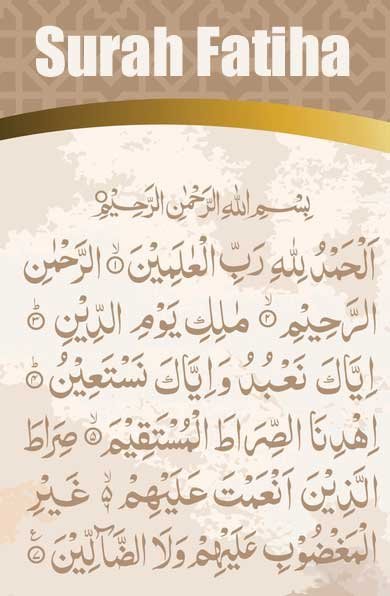 Surah Fatiha
بِسْمِ اللهِ الرَّحْمٰنِ الرَّحِيْمِ
اَلْحَمْدُ لِلّٰهِ رَبِّ الْعٰلَمِيْنَ ۙ﴿۱﴾ الرَّحْمٰنِ
الرَّحِيْمِ ۙ﴿۲﴾ مٰلِكِ يَوْمِ الدِّيْنِ ؕ﴿۳﴾
اِيَّاكَ نَعْبُدُ وَاِيَّاكَ نَسْتَعِيْنُ ؕ﴿۴﴾
اِهْدِنَا الصِّرَاطَ الْمُسْتَقِيْمَ ۙ﴿۵﴾ صِرَاطَ
الَّذِيْنَ اَنْعَمْتَ عَلَيْهِمْ ۙ۬﴿۶﴾ غَيْرِ
الْمَغْضُوْبِ عَلَيْهِمْ وَلَا الضَّآلِّيْنَ ﴿۷﴾ع